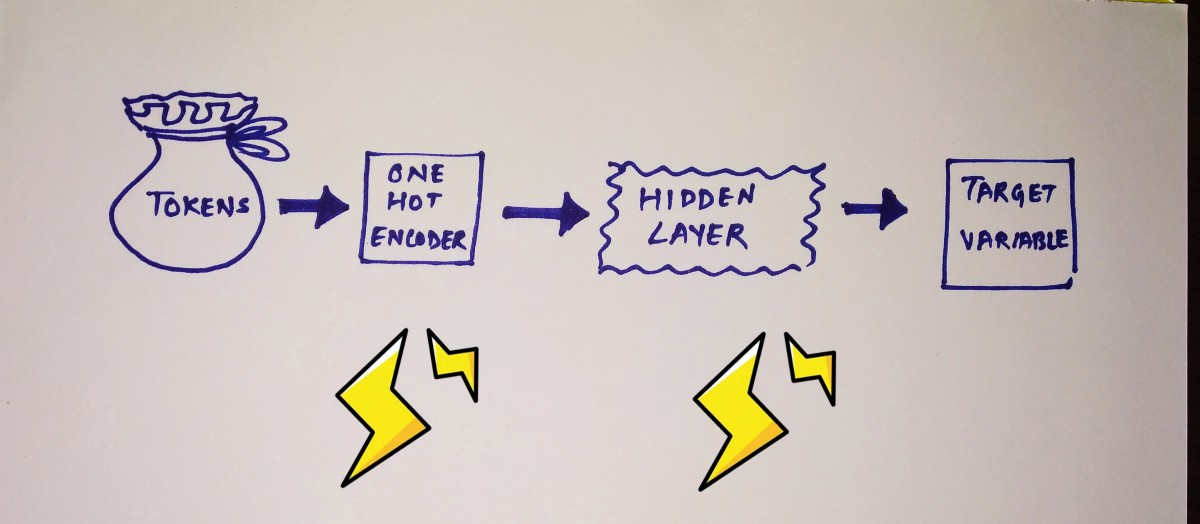 TOKENS
ONE
HOT
ENCODER
HIDDEN
LAYER
TARGET
VARIABLE